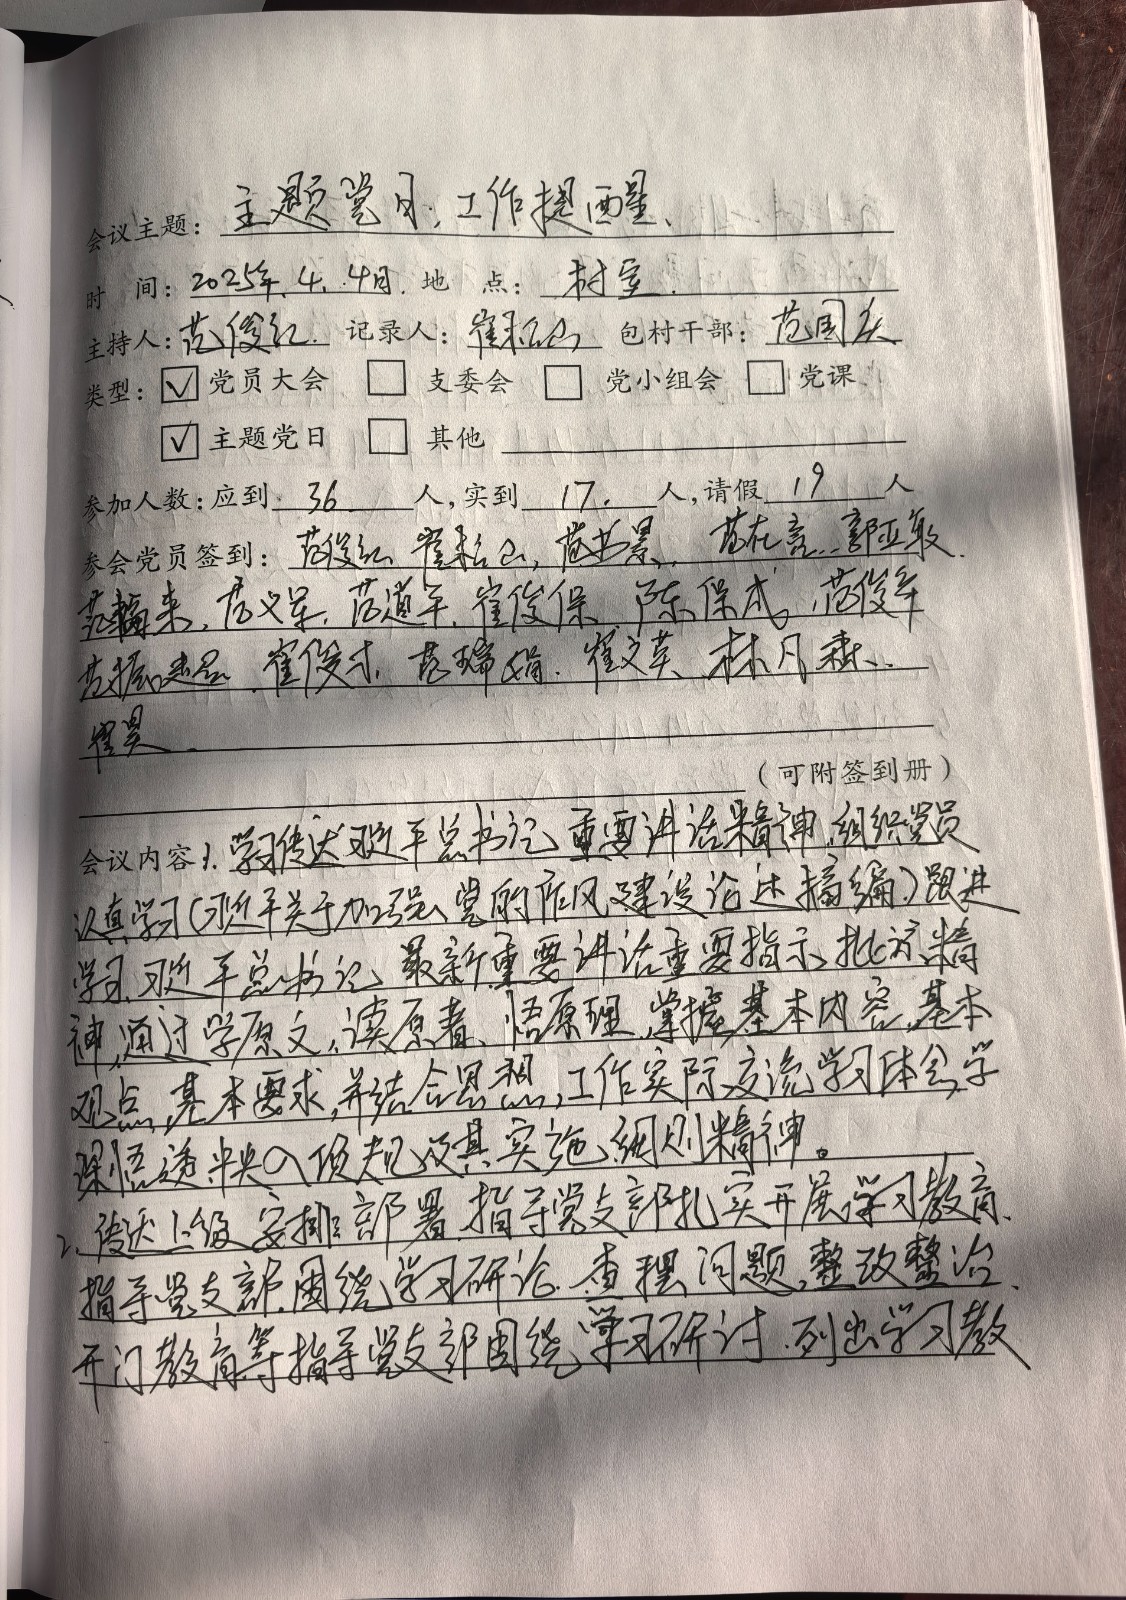 会议主题：主题党日，工作提醒、
时 间：2025年.4.4日. 地 点：村室.
主持人：范俊红. 记录人：崔松山 包村干部：范国庆
类型：☑党员大会 □支委会 □党小组会 □党课
☑主题党日 □其他
参加人数：应到36人，实到17.人，请假19人
参会党员签到：范俊红 崔松山，范书景，范在言..郭亚敏.
范福来，范义军，范道平，崔俊保 陈保成，范俊年
范振 崔俊才，范瑞娟. 崔文英 林月 
崔昊
（可附签到册）
会议内容：1.学习传达习近平总书记重要讲话精神，组织党员
认真学习（习近平关于加强党的作风建设论述摘编）跟进
学习，习近平总书记最新重要讲话重要指示、批示精
神，通过学原文，读原著、悟原理，掌握基本内容，基本
观点，基本要求，并结合思想，工作实际，交流学习体会，学
深悟透中央八项规及其实施细则精神。
2、传达上级安排部署，指导党支部扎实开展学习教育、
指导党支部，围绕学习研论，查摆问题，整改整治、
开门教育等指导党支部围绕学习研讨，列出学习教